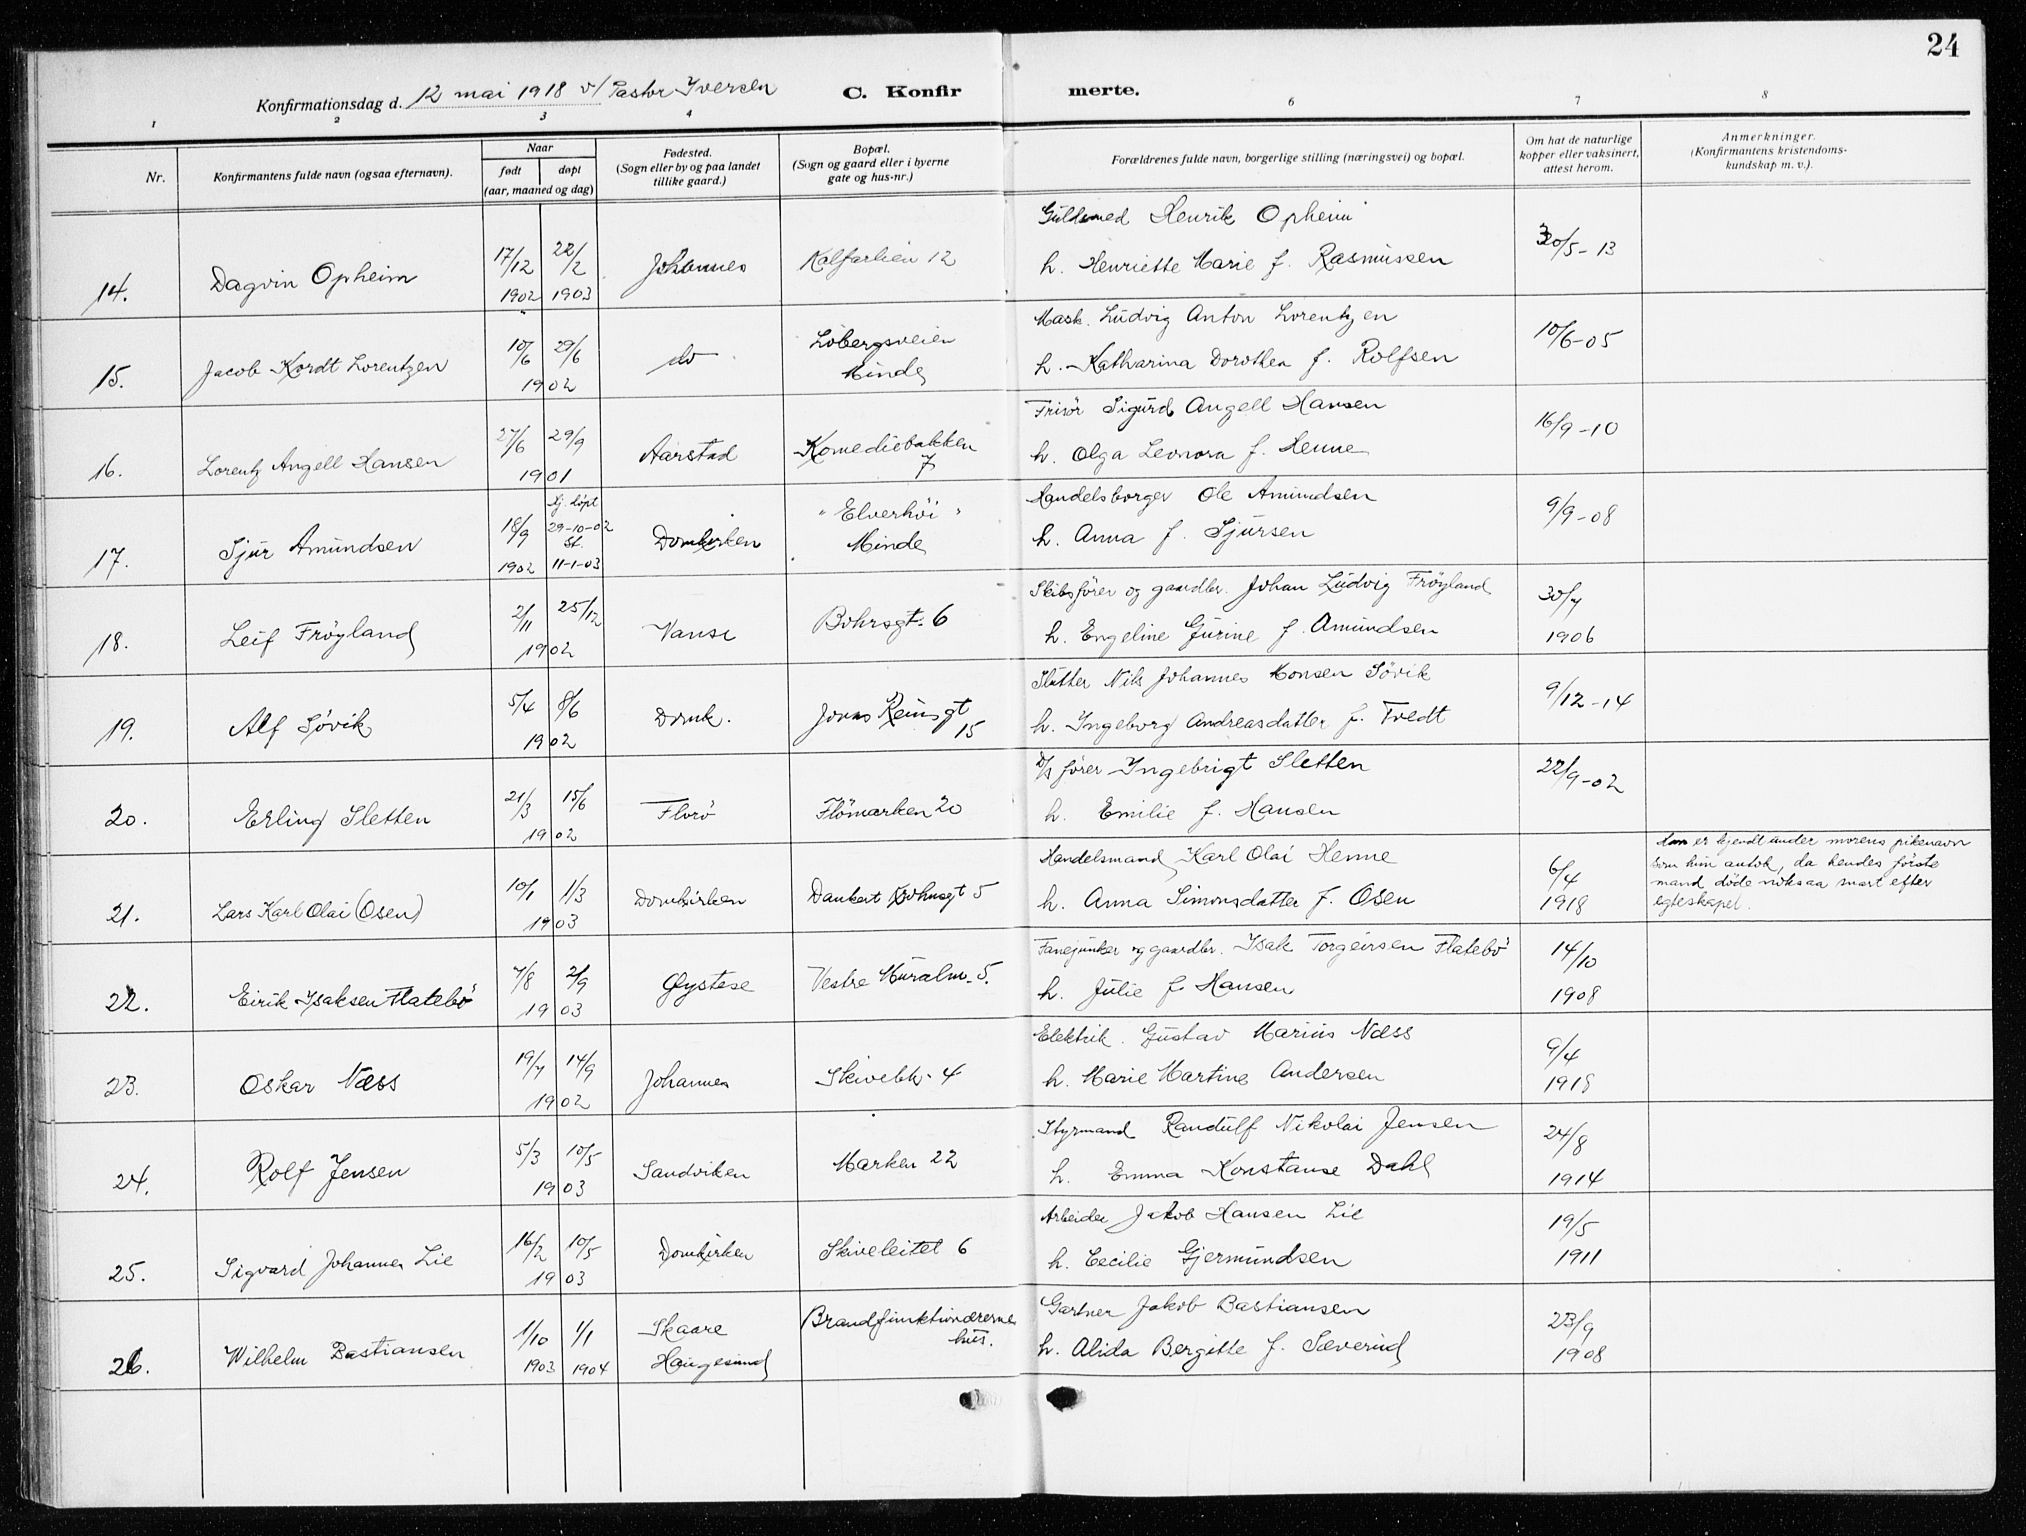 24
Konfirmationsdag d. 12 mai 1918 v/ Pastor Iversen C. Konfirmerte.
1 2 3 4 6 7 8
Nr.
Konfirmantens fulde navn (ogsaa efternavn).
Naar
født døpt
(aar, maaned og dag)
Fødested.
(Sogn eller by og paa landet
tillike gaard.)
Bopæl.
(Sogn og gaard eller i byerne
gate og hus-nr.)
Forældrenes fulde navn, borgerlige stilling (næringsvei) og bopæl.
Om hat de naturlige
kopper eller vaksinert,
attest herom.
Anmerkninger.
(Konfirmantens kristendoms-
kundskap m. v.).
Guldsmed Henrik Opheim
14. Dagvin Opheim 17/12 1902 22/2 1903 Johannes Kalfarlien 12
h. Henriette Marie f. Rasmussen 30/5-13
Mask. Ludvig Anton Lorentzen
15. Jacob Kordt Lorentzen 10/6 29/6 1902 do Løbergsveien Minde
h. Katharina Dorothea f. Rolfsen 10/6-05
Frisör Sigurd Angell Hansen
16. Lorentz Angell Hansen 27/6 29/9 1901 Aarstad Komediebakken 7
h. Olga Leonora f. Henne 16/9-10
Handelsborger Ole Amundsen
17. Sjur Amundsen 18/9 1902 Hj. døpt 29-10-02 St. 11-1-03 Domkirken "Elverhöi" Minde
h. Anna f. Sjursen 9/9-08
Skibsförer og gaardbr. Johan Ludvig Fröyland
18. Leif Fröyland 2/11 25/12 1902 Vanse Bohrsgt. 6
h. Engeline Gurine f. Amundsen 30/7 1906
Slutter Nils Johannes Monsen Søvik
19. Alf Søvik 5/4 8/6 1902 Domk. Jonas Reinsgt 15
h. Ingeborg Andreasdatter f. Tvedt 9/12-14
D/S förer Ingebrigt Sletten
20. Erling Sletten 21/3 15/6 1902 Florö Flömarken 20
h. Emilie f. Hansen 22/9-02
Handelsmand Karl Olai Henne
21. Lars Karl Olai (Osen) 10/1 1/3 1903 Domkirken Dankert Krohnsgt 5
h. Anna Simonsdatter f. Osen 6/4 1918
Han er kjendt under morens pikenavn
som hun antok, da hendes förste
mand døde noksaa snart efter
egteskapet.
Fanejunker og gaardbr. Isak Torgeirsen Flatebö
22. Eirik Isaksen Flatebö 7/8 2/9 1903 Øystese Vestre Muralm. 5.
h. Julie f. Hansen 14/10 1908
Elektrik. Gustav Marius Næss
23. Oskar Næss 19/7 14/9 1902 Johannes Skivebk. 4
h. Marie Martine Andersen 9/4 1918
Styrmand Randulf Nikolai Jensen
24. Rolf Jensen 5/3 10/5 1903 Sandviken Marken 22
h. Emma Konstanse Dahl 24/8 1914
Arbeider Jakob Hansen Lie
25. Sigvard Johannes Lie 16/2 10/5 1903 Domkirken Skiveleitet 6
h. Cecilie Gjermundsen 19/5 1911
Gartner Jakob Bastiansen
26. Wilhelm Bastiansen 1/10 1903 1/1 1904 Skaare Haugesund Brandfunktionærernes hus.
h. Alida Bergitte f. Sæverud 23/9 1908